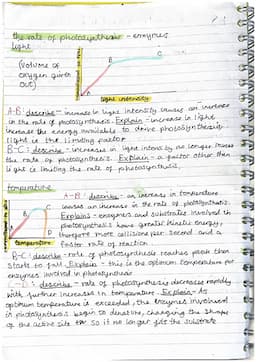 the rate of photosynthesis - enzymes
light
(volume of
oxygen given
out)
A
B
C
light intensity
A-B: describe - increase in light intensity causes an increase
in the rate of photosynthesis. Explain - increase in light
increase the energy available to drive photosynthesis
light is the limiting factor
B-C: describe - increases in light intensity no longer
the rate of photosynthesis. Explain - a factor other than
light is limiting the rate of photosynthesis.
temperature
A
B
C
D
temperature
A-B: describe - an increase in temperature
causes an increase in the rate of photosynthesis.
Explain - enzymes and substrates involved in
photosynthesis have greater kinetic energy,
therefore more collisions per second and a
faster rate of reaction
B-C: describe - rate of photosynthesis reaches peak then
starts to fall. Explain - this is the optimum temperature for
enzymes involved in photosynthesis
C-D: describe - rate of photosynthesis decreases rapidly
with further increases in temperature. Explain - As
optimum temperature is exceeded, the enzymes involved
in photosynthesis begin to denature, changing the shape
of the active site so it no longer fits the substrate